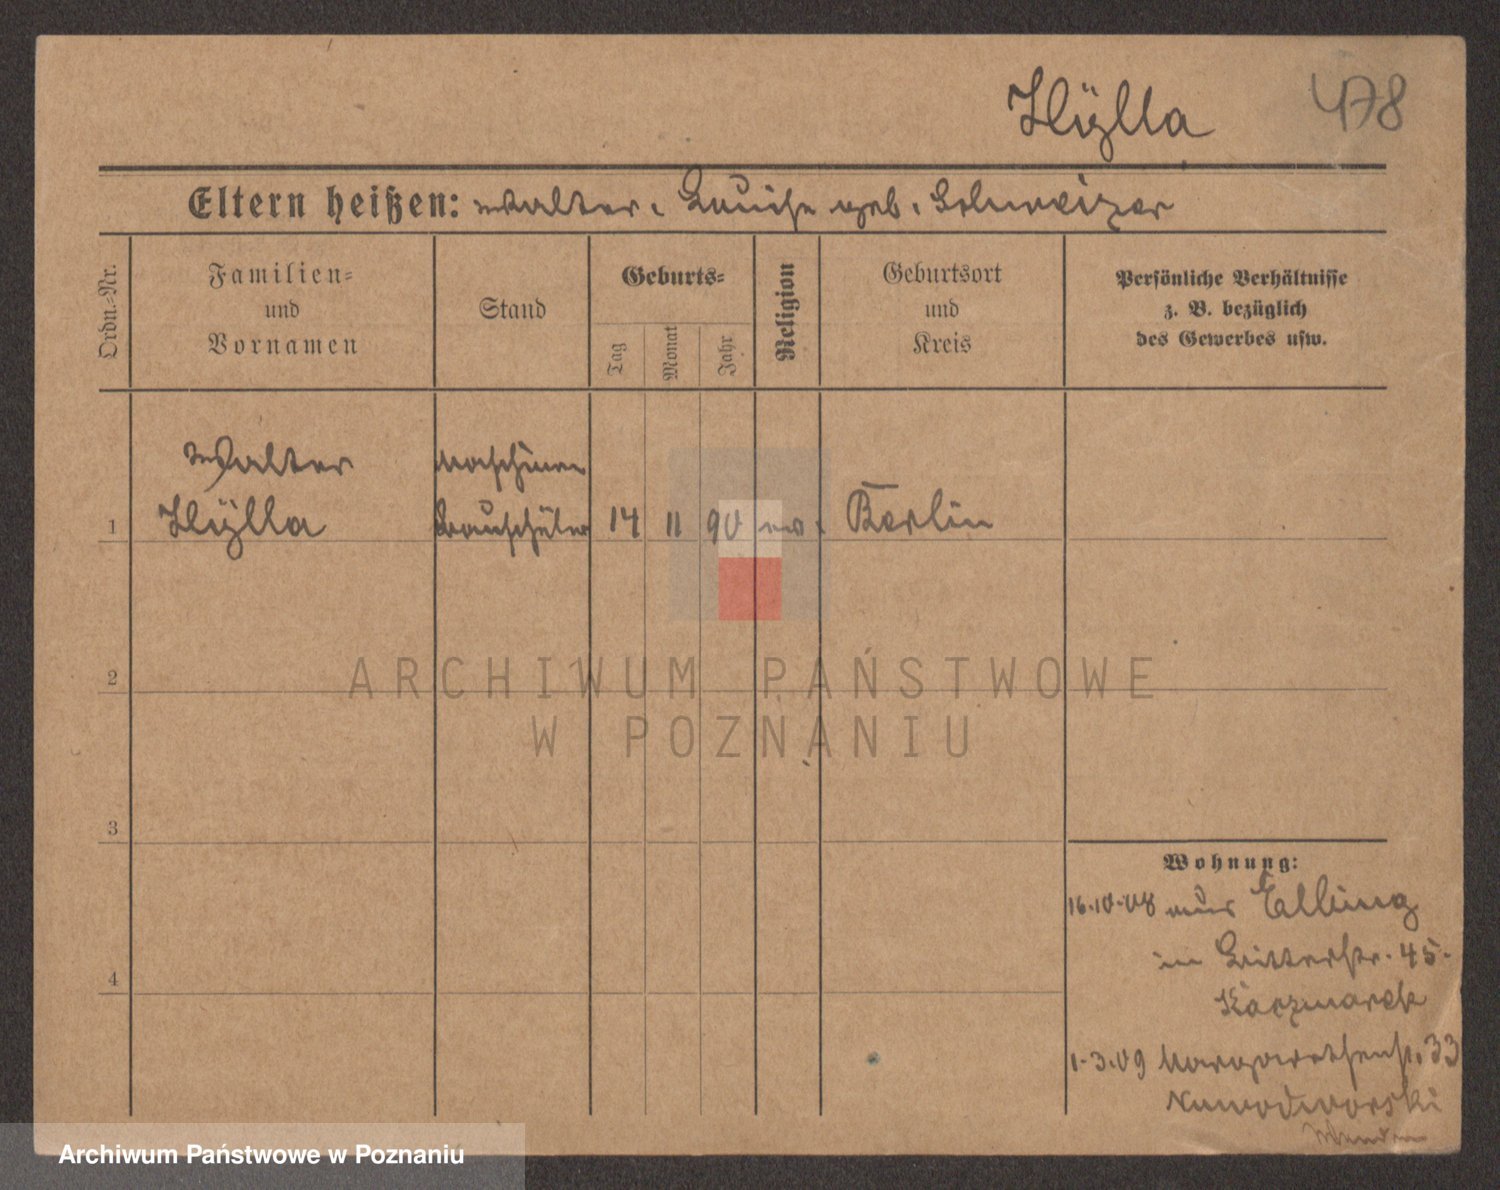 Hÿlla 478
Eltern heißen: Walter, Louise geb. Schweizer
Ordn.-Nr.
Familien-
und
Vornamen
Stand
Geburts-
Tag
Monat
Jahr
Religion
Geburtsort
und
Kreis
Persönliche Verhältnisse
z. B. bezüglich
des Gewerbes usw.
Walter Maschinen
1 Hÿlla Bauschüler 14 11 90 ev. Berlin
2
ARCHIWUM PAŃSTWOWE
W POZNANIU
3
Wohnung:
16.10.08 aus Elbing
in Ritterstr. 45.
Kaczmarek
4
1.3.09 Margarethenst. 33
Nowodworski
Archiwum Państwowe w Poznaniu